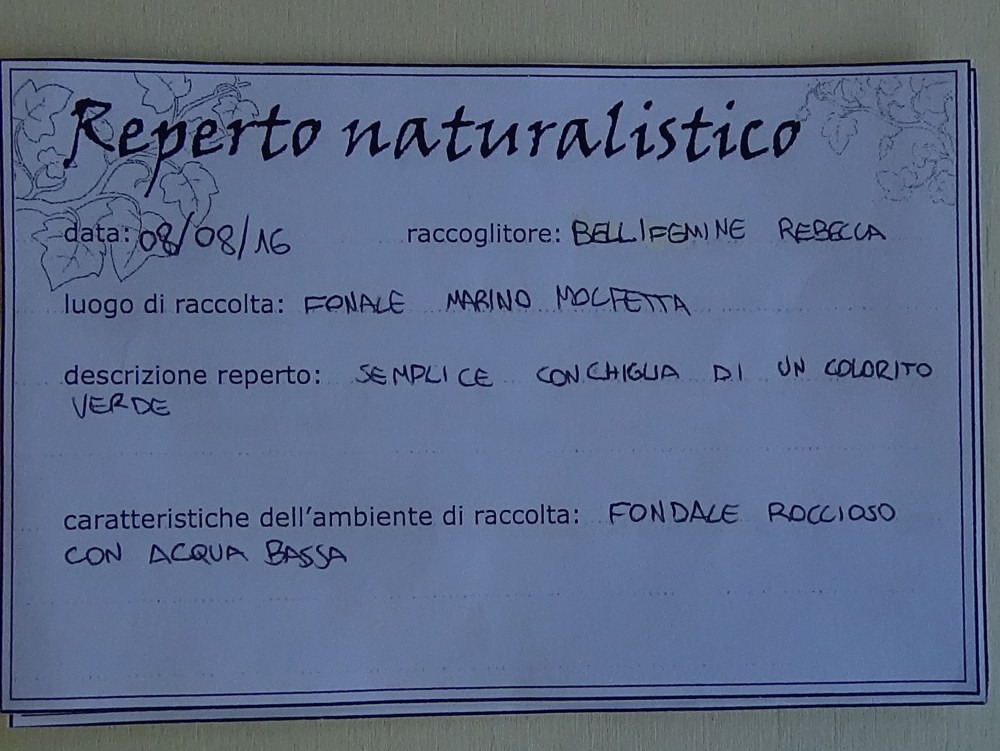 Reperto naturalistico
data: 08/08/16 raccoglitore: BELLIFEMINE REBECCA
luogo di raccolta: FONALE MARINO MOLFETTA
descrizione reperto: SEMPLICE CONCHIGLIA DI UN COLORITO
VERDE
caratteristiche dell'ambiente di raccolta: FONDALE ROCCIOSO
CON ACQUA BASSA